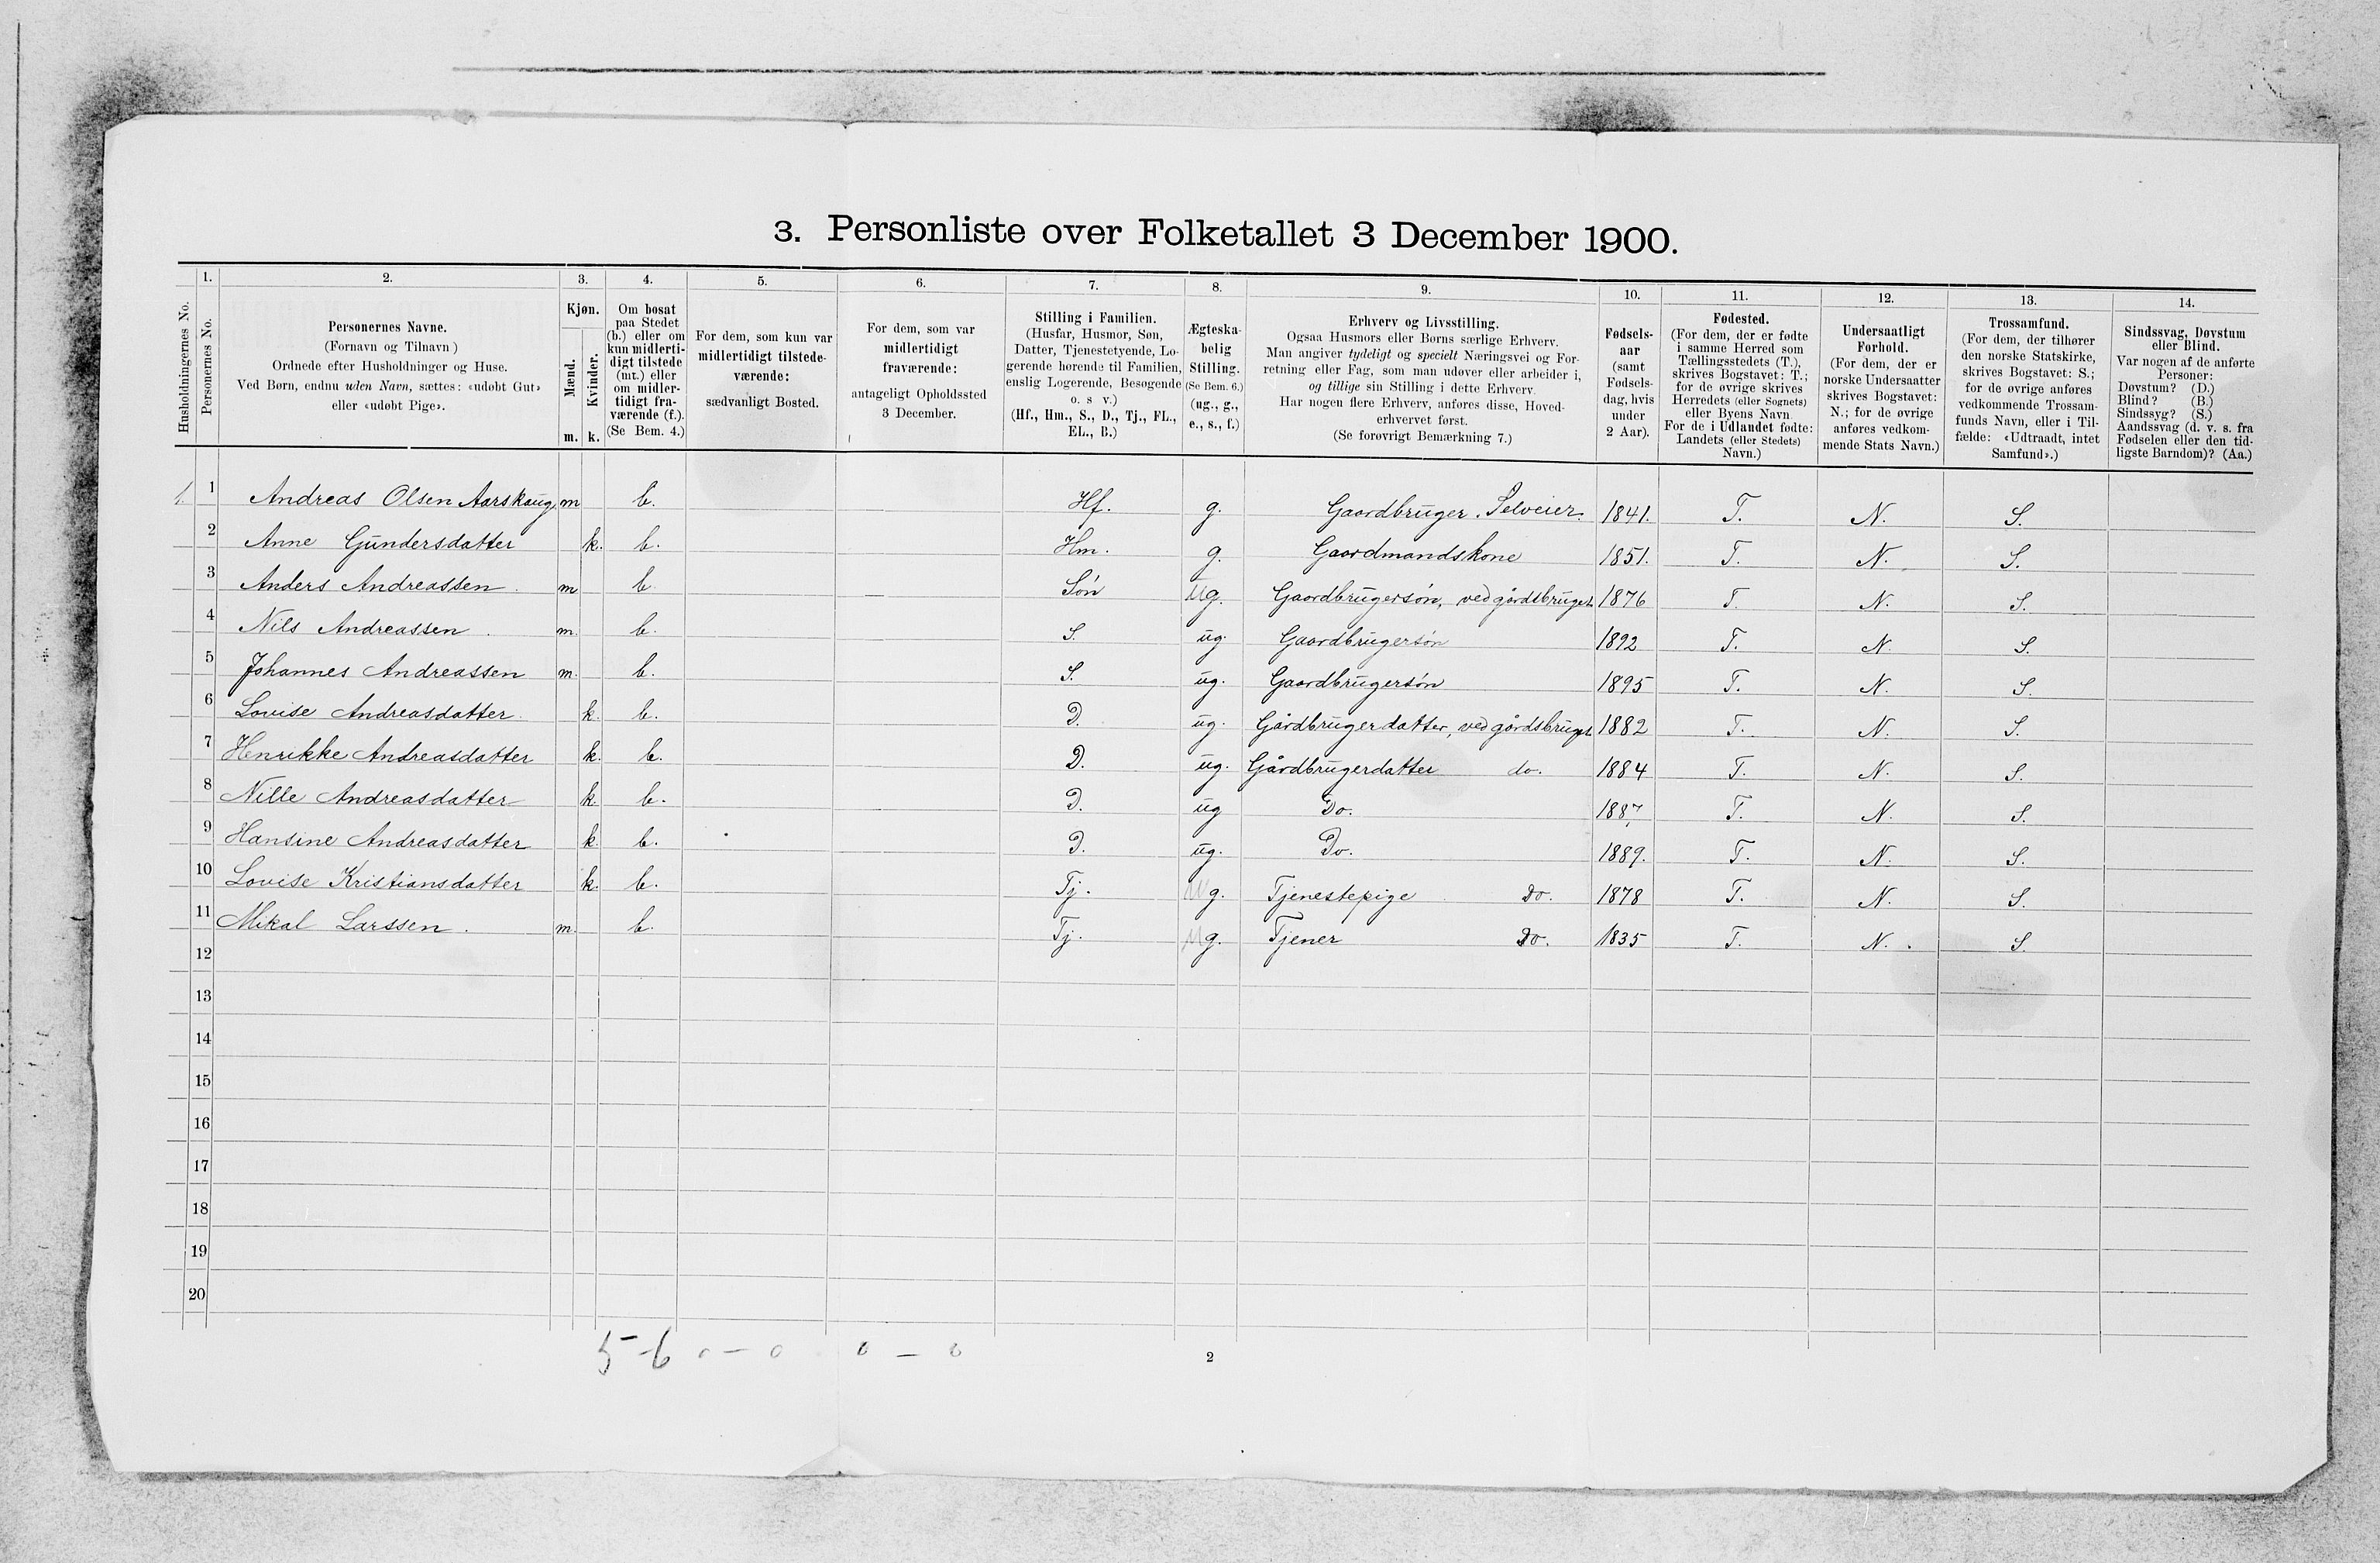 3. Personliste over Folketallet 3 December 1900.
Husholdningernes No.
1.
Personernes No.
2.
Personernes Navne.
(Fornavn og Tilnavn)
Ordnede efter Husholdninger og Huse.
Ved Børn, endnu uden Navn, sættes: «udøbt Gut»
eller «udøbt Pige».
3.
Kjøn.
Mænd.
Kvinder.
m. k.
4.
Om bosat
paa Stedet
(b.) eller om
kun midlerti-
digt tilstede
(mt.) eller
om midler-
tidigt fra-
værende (f.).
(Se Bem. 4.)
5.
For dem, som kun var
midlertidigt tilstede-
værende:
sædvanligt Bosted.
6.
For dem, som var
midlertidigt
fraværende:
antageligt Opholdssted
3 December.
7.
Stilling i Familien.
(Husfar, Husmor, Søn,
Datter, Tjenestetyende, Lo-
gerende hørende til Familien,
enslig Logerende, Besøgende
o. s v.)
(Hf., Hm., S., D., Tj., FL.,
EL., B.)
8.
Ægteska-
belig
Stilling.
(Se Bem. 6.)
(ug., g.,
e., s., f.)
9.
Erhverv og Livsstilling.
Ogsaa Husmors eller Børns særlige Erhverv.
Man angiver tydeligt og specielt Næringsvei og For-
retning eller Fag, som man udøver eller arbeider i,
og tillige sin Stilling i dette Erhverv.
Har nogen flere Erhverv, anføres disse, Hoved-
erhvervet først.
(Se forøvrigt Bemærkning 7.)
10.
Fødsels-
aar
(samt
Fødsels-
dag, hvis
under
2 Aar).
11.
Fødested.
(For dem, der er fødte
i samme Herred som
Tællingsstedets (T.),
skrives Bogstavet: T.;
for de øvrige skrives
Herredets (eller Sognets)
eller Byens Navn
For de i Udlandet fødte:
Landets (eller Stedets)
Navn.)
12.
Undersaatligt
Forhold.
(For dem, der er
norske Undersaatter
skrives Bogstavet:
N.; for de øvrige
anføres vedkom-
mende Stats Navn.)
13.
Trossamfund.
(For dem, der tilhører
den norske Statskirke,
skrives Bogstavet: S.;
for de øvrige anføres
vedkommende Trossam-
funds Navn, eller i Til-
fælde: «Udtraadt, intet
Samfund».)
14.
Sindssvag, Døvstum
eller Blind.
Var nogen af de anførte
Personer:
Døvstum? (D.)
Blind? (B.)
Sindssyg? (S.)
Aandssvag (d. v. s. fra
Fødselen eller den tid-
ligste Barndom)? (Aa.)
1. 1 Andreas Olsen Aarskaug m b. Hf. g. Gaardbruger. Selveier. 1841. T. N. S.
2 Anne Gundersdatter k. b. Hm. g. Gaardmandskone 1851. T. N. S.
3 Anders Andreassen. m b. — Søn ug. Gaardbrugersøn, ved gårdsbruget 1876 T. N. S.
4 Nils Andreassen. m. b. S. ug. Gaardbrugersøn 1892 T. N. S.
5 Johannes Andreassen m. b. S. ug. Gaardbrugersøn 1895 T. N. S.
6 Lovise Andreasdatter. k. b. D. ug. Gårdbrugerdatter, ved gårdsbruget 1882 T. N. S.
7 Henrikke Andreasdatter k. b. D. ug. Gårdbrugerdatter do. 1884 T. N. S.
8 Nille Andreasdatter k. b. D. ug Do. 1887. T. N. S.
9 Hansine Andreasdatter k. b. D. ug. Do. 1889. T. N. S.
10 Lovise Kristiansdatter k. b. Tj. ug. Tjenestepige Do. 1878 T. N. S.
11 Mikal Larssen. m. b. Tj. ug. Tjener Do. 1835 T. N. S.
12
13
14
15
16
17
18
19
20
5-6 0-0 0-0
2